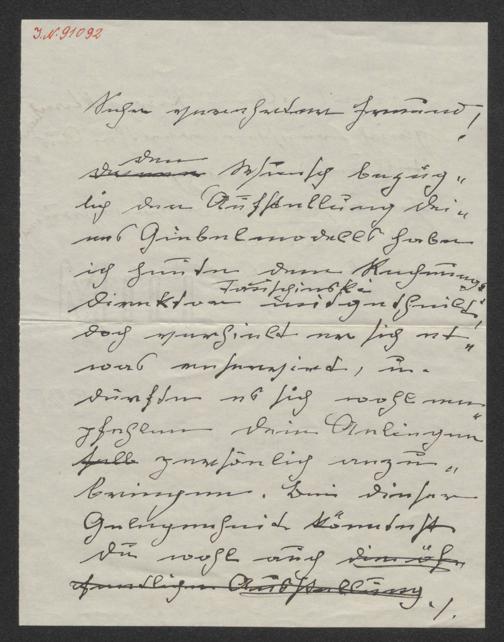 I.N. 91092
Sehr verehrter Freund!
den
deinen Wunsch bezüg„
lich der Aufstellung dei„
nes Giebelmodells habe
ich heute dem Rechnungs„
Tauschinski
direktor mitgetheilt,
doch verhielt er sich et„
was reservirt, u.
dürfte es sich wohl em„
pfehlen dein Anliegen
selb persönlich anzu„
bringen. Bei dieser
Gelegenheit könntest
Du wohl auch die öf„
fentlichen Ausstellung ./.